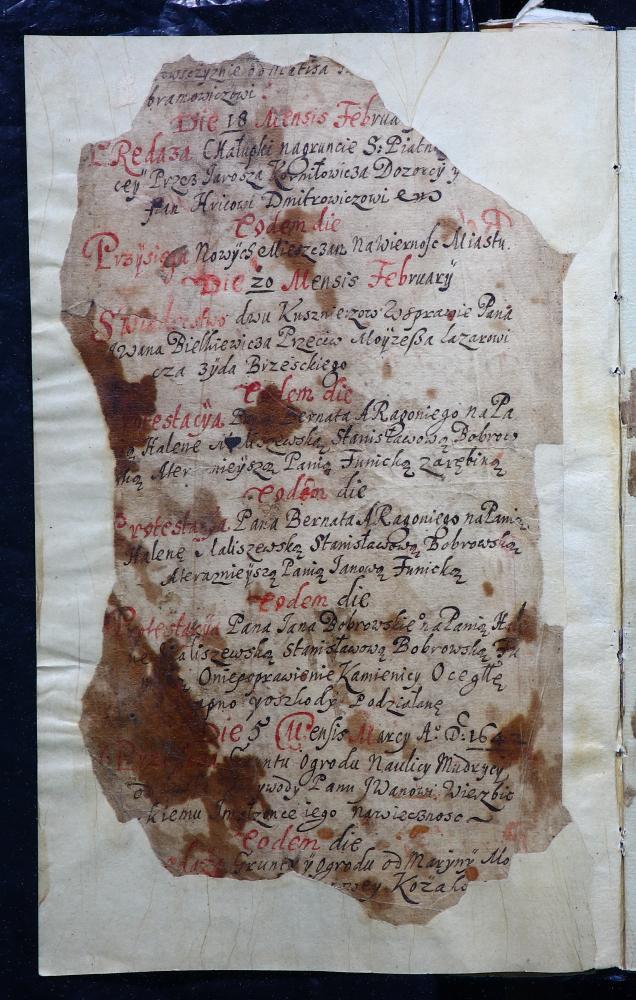 bramowiczowi
Die 18 Mensis Februa
Redaza Chałupki nagruncie S: Piatn
cey Przez Jarosza Kornilowicza Dozorcy y
Hricowi Dmitrowiczowi
Eodem die
Przysięga Nowych Mieszczan Nawiernosc Miastu.
Die 20 Mensis February
Swiadectwo dwu Kusznierzow Wsprawie Pana
Jwana Bielkiewicza Przeciw Moyzessa Lazarowi
cza Zyda Brzesckiego
Eodem die
testacya Bernata A Ragoniego na Pa
Halenę Stanisławową Bobrow
Aterazmieyszą Panią Junicką
Eodem die
Protestacya Pana Bernata A Ragoniego na Panią
Halenę Maliszewską Stanisławową Bobrowską
Aterazmieyszą Panią Janową Junicką
Eodem die
Protestacya Pana Jana Bobrowskie° na Panią Hal
aliszewską Stanisławową Bobrowską
Oniepoprawienie Kamienicy Ocegłę
yoszkody Podziałanę
Die 5 Mensis Marcy A° D. 164
Gruntu Ogrodu Naulicy Mudrycy
Panu Jwanowi Wierzbic
kiemu Imałzonce iego Nawiecznosc
Eodem die
Gruntu y ogrodu od Maryny Mo